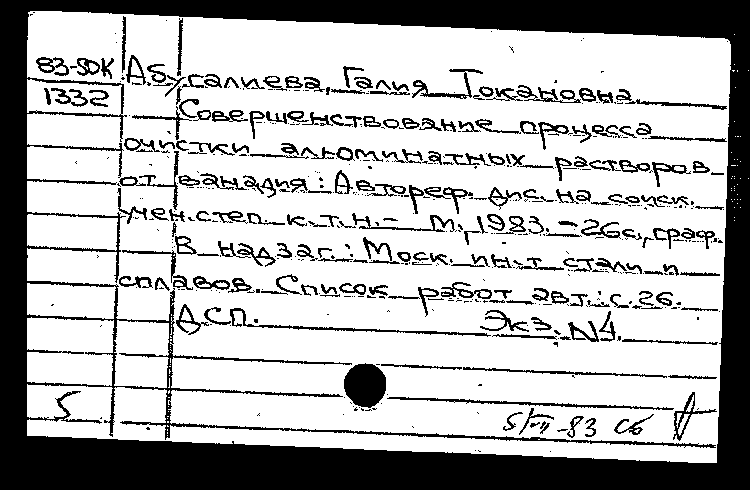 83-5ДК Абусалиева, Галия Токановна.
1332 Совершенствование процесса
очистки алюминатных растворов
от ванадия: Автореф. дис. на соиск.
учен. степ. к.т.н. - М., 1983. - 26 с., граф.
В надзаг.: Моск. ин-т стали и
сплавов. Список работ авт.: с. 26.
ДСП. Экз. N4.
5
5/II-83 Сб